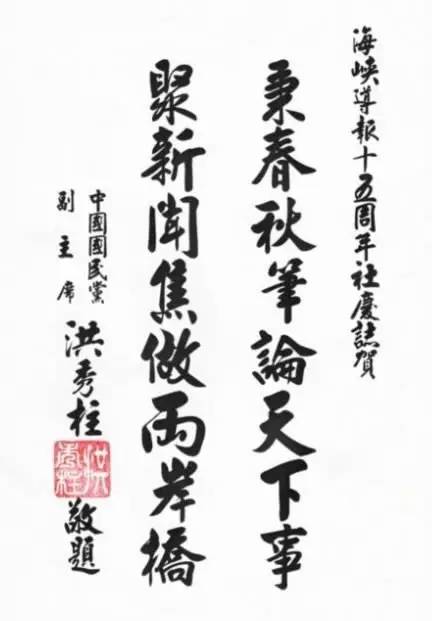 海峽導報十五周年社慶誌賀
秉春秋筆論天下事
聚新聞焦做兩岸橋
中國國民黨
副主席
洪秀柱
洪秀柱
敬題